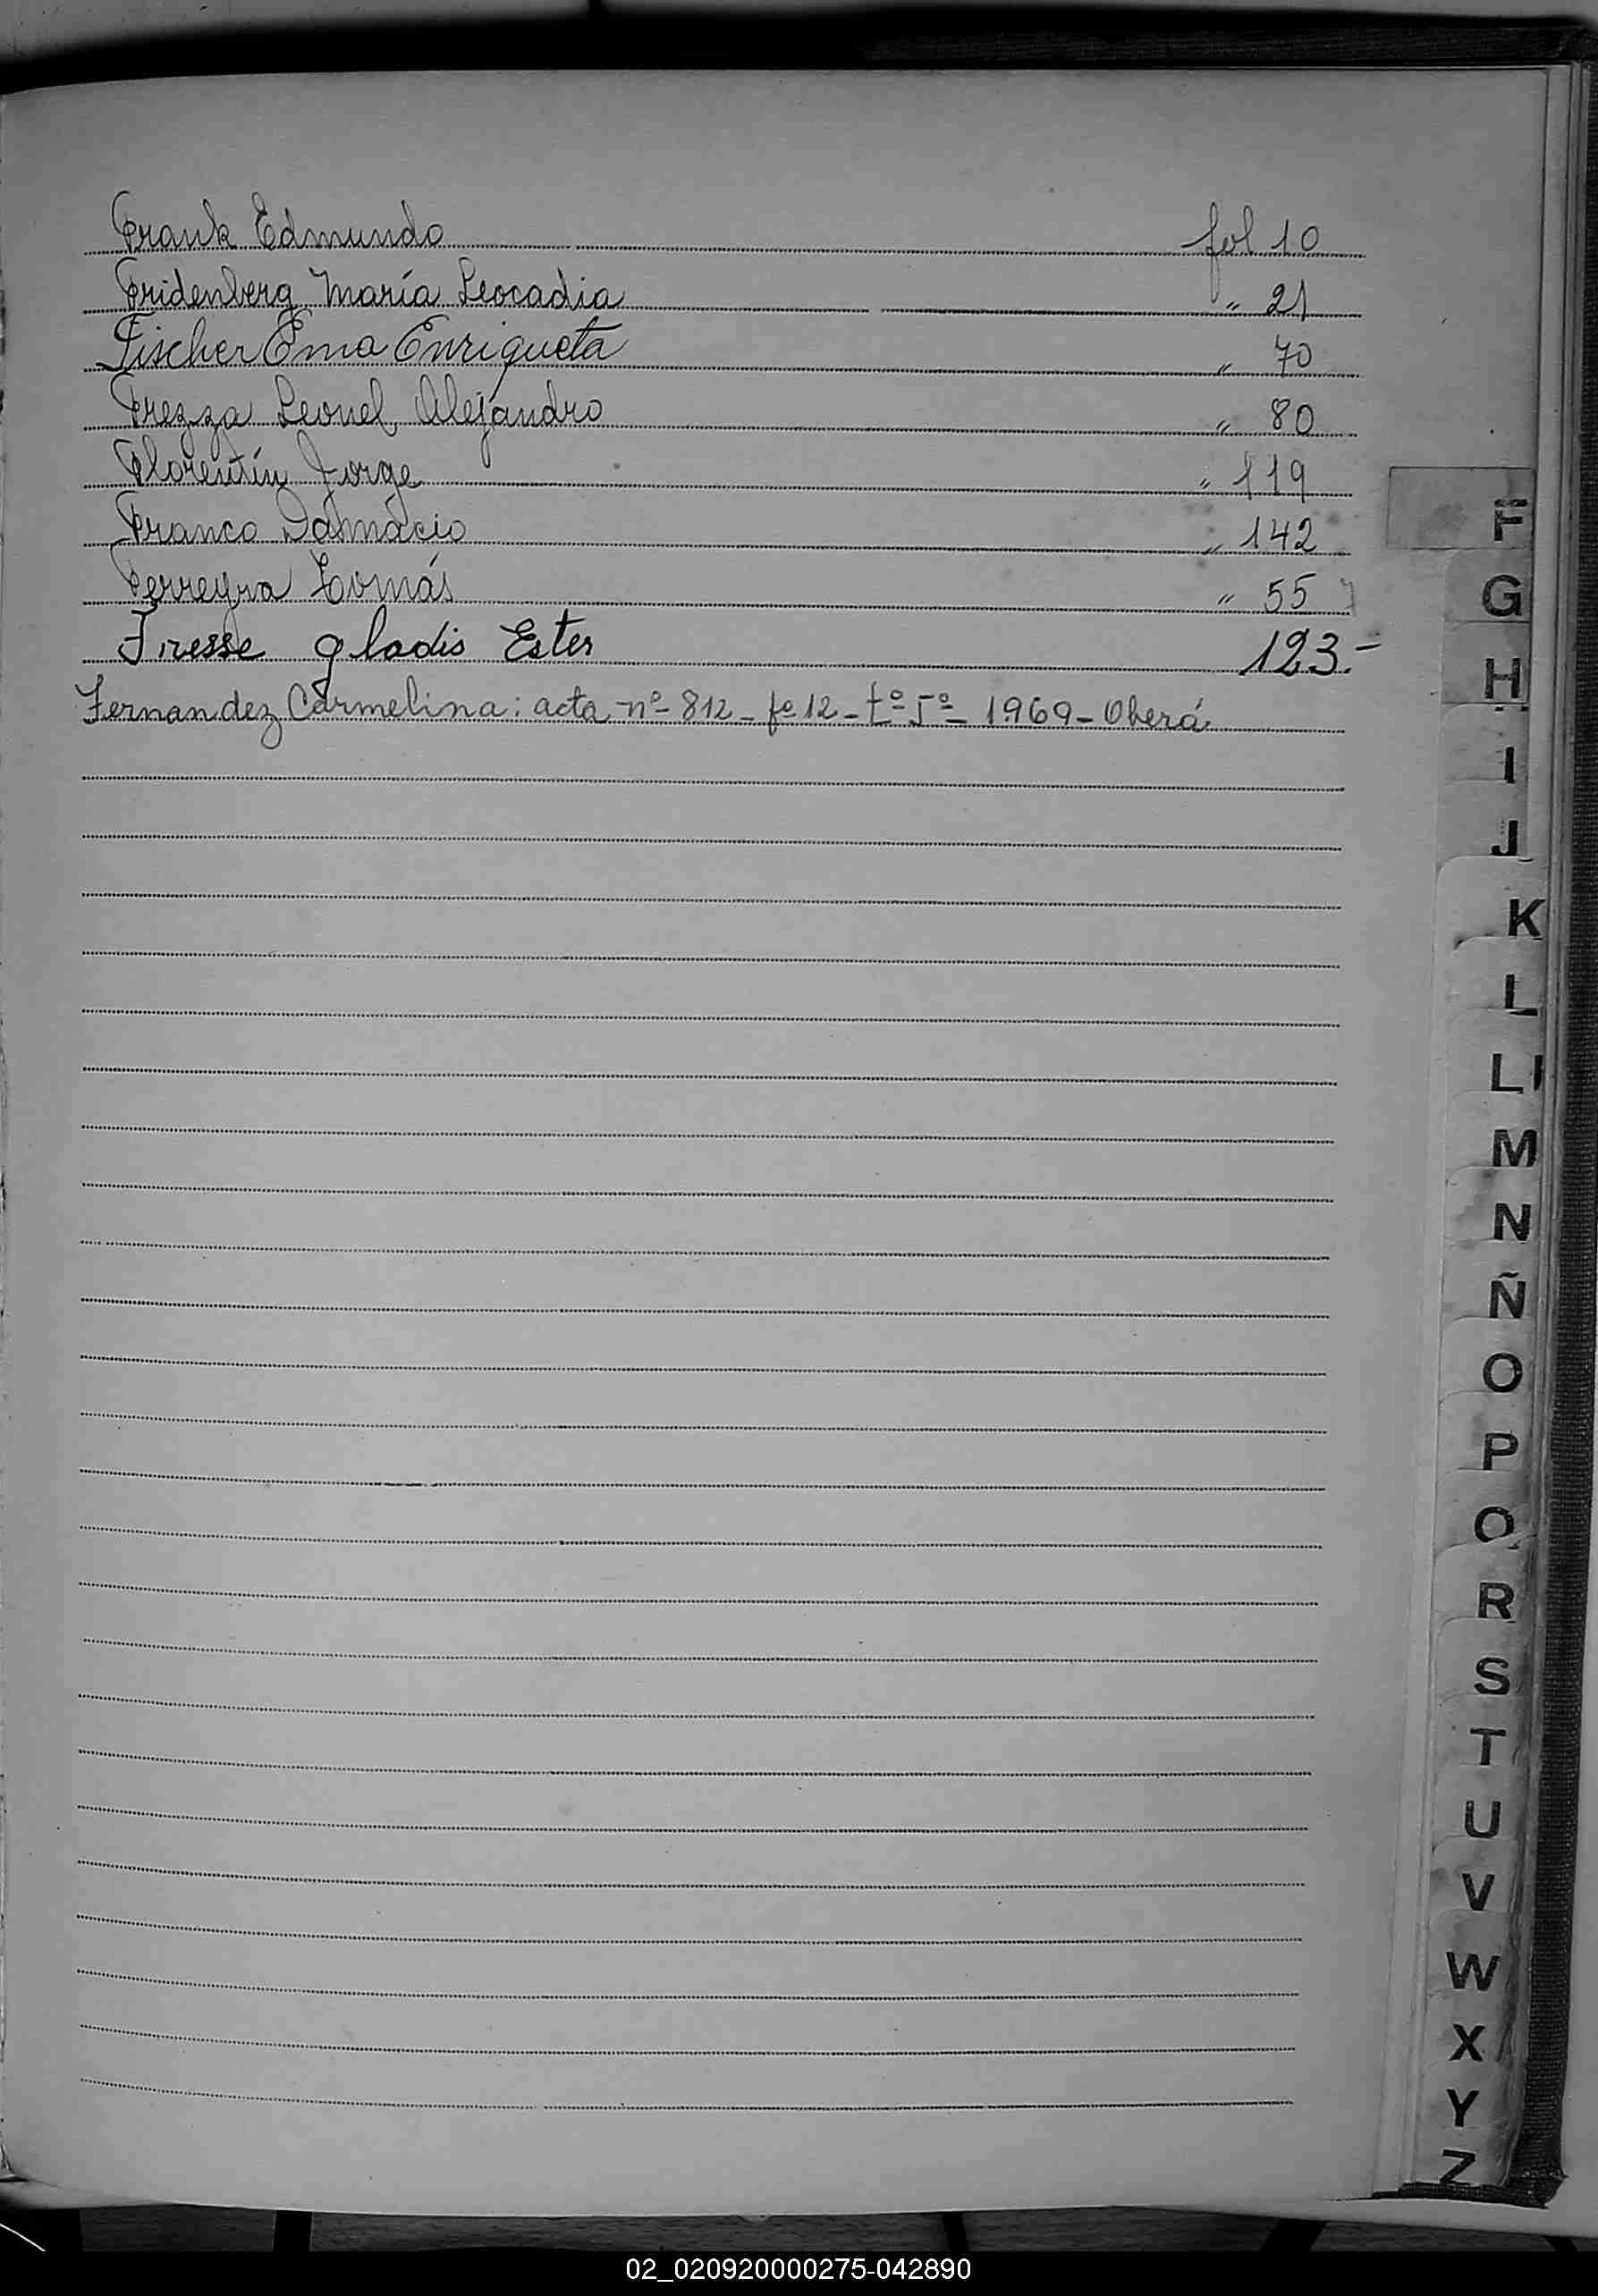 Frank Edmundo fol 10
Fridenberg María Leocadia " 21
Fischer Ema Enriqueta " 70
Frezza Leonel Alejandro " 80
Florentín Jorge " 119
Franco Dalmacio " 142
Ferreyra Tomás " 55
Fresse Gladis Ester 123.-
Fernandez Carmelina: acta nº 812 - fº 12 - tº 5º - 1969 - Oberá
F
G
H
I
J
K
L
Ll
M
N
Ñ
O
P
Q
R
S
T
U
V
W
X
Y
Z
02_020920000275-042890